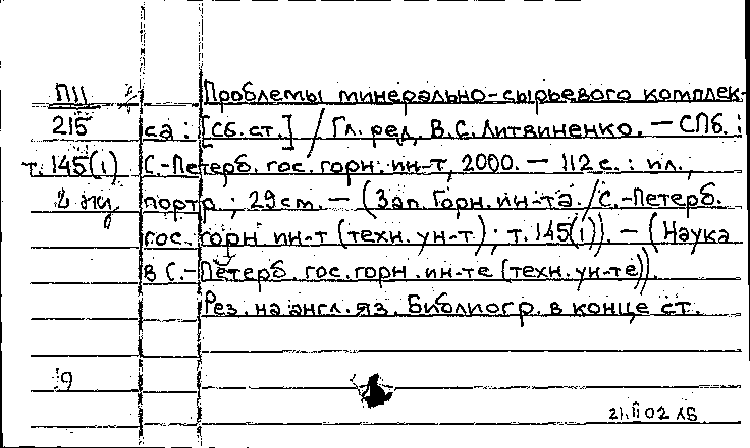 П11 Проблемы минерально-сырьевого комплек-
215 са : [Сб. ст.] / Гл. ред. В.С. Литвиненко. — СПб. :
т. 145(1) С.-Петерб. гос. горн. ин-т, 2000. — 112 с. : ил.,
2 экз портр ; 29 см. — (Зап. Горн. ин-та / С.-Петерб.
гос. горн ин-т (техн. ун-т) ; т. 145(1)). — (Наука
в С.-Петерб. гос. горн. ин-те (техн. ун-те)).
Рез. на англ. яз. Библиогр. в конце ст.
9
21.II 02